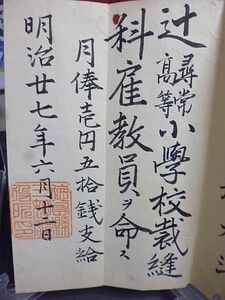 辻尋常高等小學校裁縫
科雇教員ヲ命ス
月俸壱円五拾銭支給
明治廿七年六月十二日